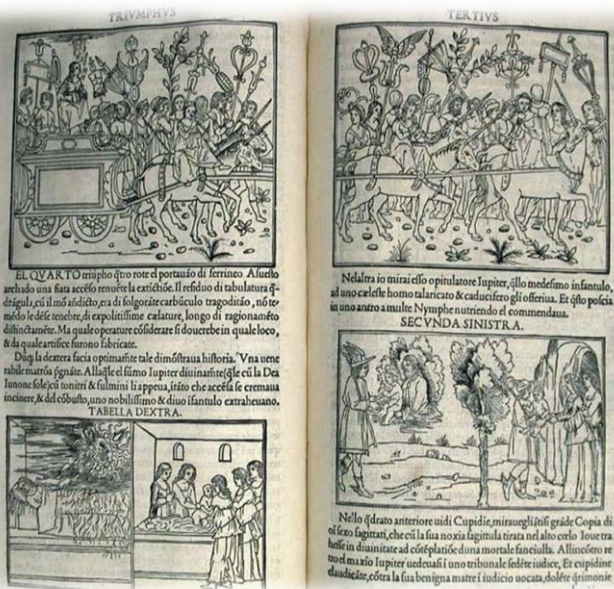 TRIVMPHVS
EL QVARTO triũpho q̃tro rote el portauão di ferrineo Asuesto
archado una fiata accẽso renuẽte la extĩctiõe. Il residuo di tabulatura q̃-
drãgula, cũ il mõ ãndicto, era di folgorãte carbũculo tragoditão, nõ te-
mẽdo le dẽse tenebre, di expolitissime cælature, longo di ragionamẽto
distinctamẽte. Ma quale operature cõsiderare si douerebe in quale loco,
& da quale artifice furono fabricate.
Dũq; la dextera facia optimamẽte tale dimõstraua historia. Vna uene
rabile matrõa p̃gnãte. Alla q̃le el sũmo Iupiter diuinamẽte (q̃le cũ la Dea
Iunone sole) cũ tonitri & fulmini li appeua, ĩtãto che accẽsa se cremaua
incinere, & del cõbusto, uno nobilissimo & diuo ĩfantulo extraheuano.
TABELLA DEXTRA.
TERTIVS
Nelaltra io mirai esso opitulatore Iupiter, q̃llo medesimo infantulo,
ad uno cæleste homo talaricato & caducifero gli offeriua. Et q̃sto poscia
in uno antro a multe Nymphe nutriendo el commendaua.
SECVNDA SINISTRA.
Nello q̃drato anteriore uidi Cupidie, mirauegliãtise grãde Copia di
sexo sagittari, che cũ la sua noxia sagittula tirata nel alto cœlo Ioue tra
hesse in diuinitate ad cõtẽplatiõe duna mortale fanciulla. Allincõtro re
tro el maxio Iupiter uedeuasi ĩ uno tribunale sedẽte iudice, Et cupidine
claudicãte, cõtra la sua benigna matre ĩ iudicio uocata, dolẽte q̃rimonie